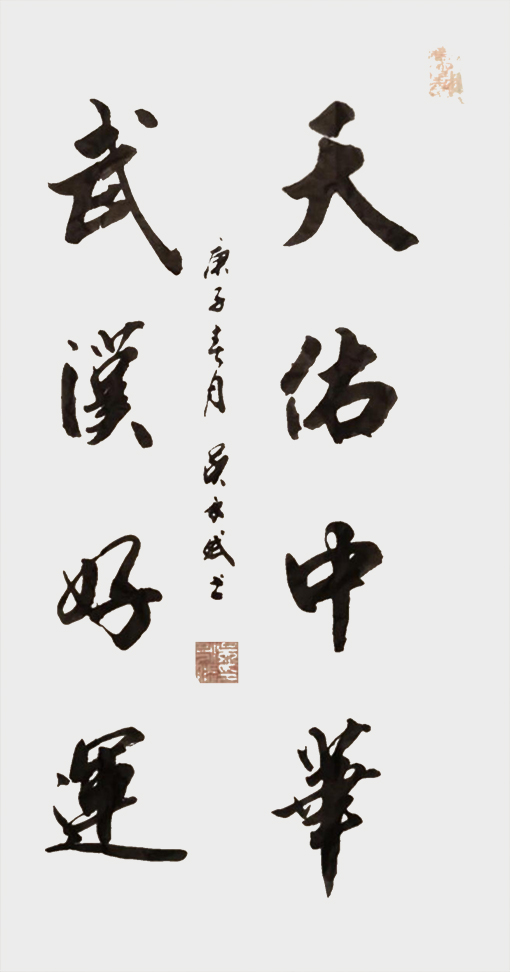 天佑中華
武漢好運
庚子春月吳永成书